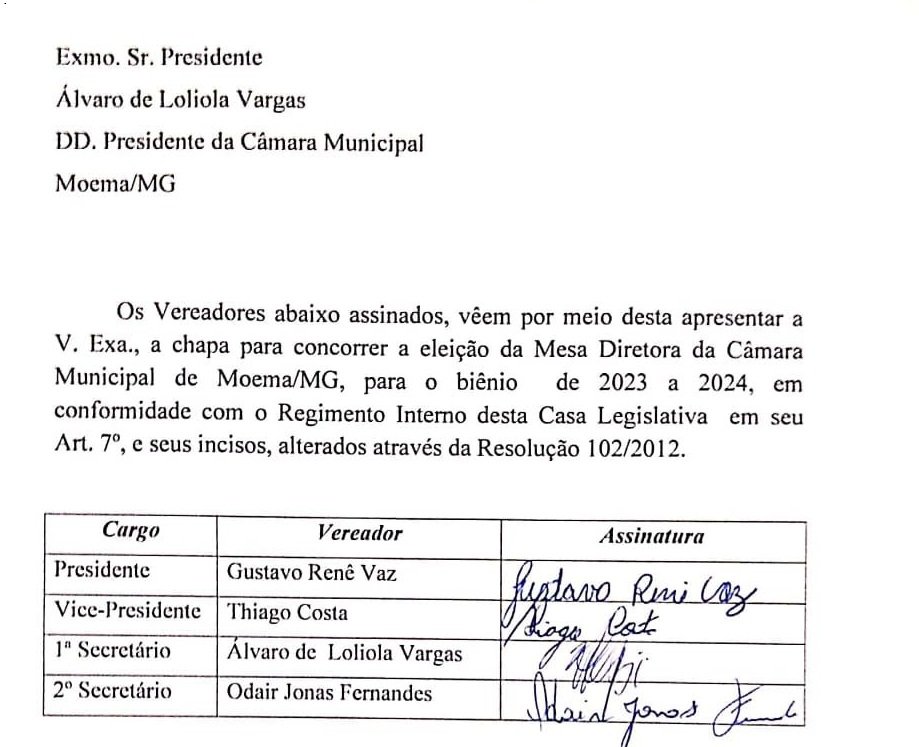 Exmo. Sr. Presidente
Álvaro de Loliola Vargas
DD. Presidente da Câmara Municipal
Moema/MG
Os Vereadores abaixo assinados, vêem por meio desta apresentar a
V. Exa., a chapa para concorrer a eleição da Mesa Diretora da Câmara
Municipal de Moema/MG, para o biênio de 2023 a 2024, em
conformidade com o Regimento Interno desta Casa Legislativa em seu
Art. 7º, e seus incisos, alterados através da Resolução 102/2012.
Cargo Vereador Assinatura
Presidente Gustavo Renê Vaz Gustavo Renê Vaz
Vice-Presidente Thiago Costa Thiago Costa
1ª Secretário Álvaro de Loliola Vargas
2º Secretário Odair Jonas Fernandes Odair Jonas